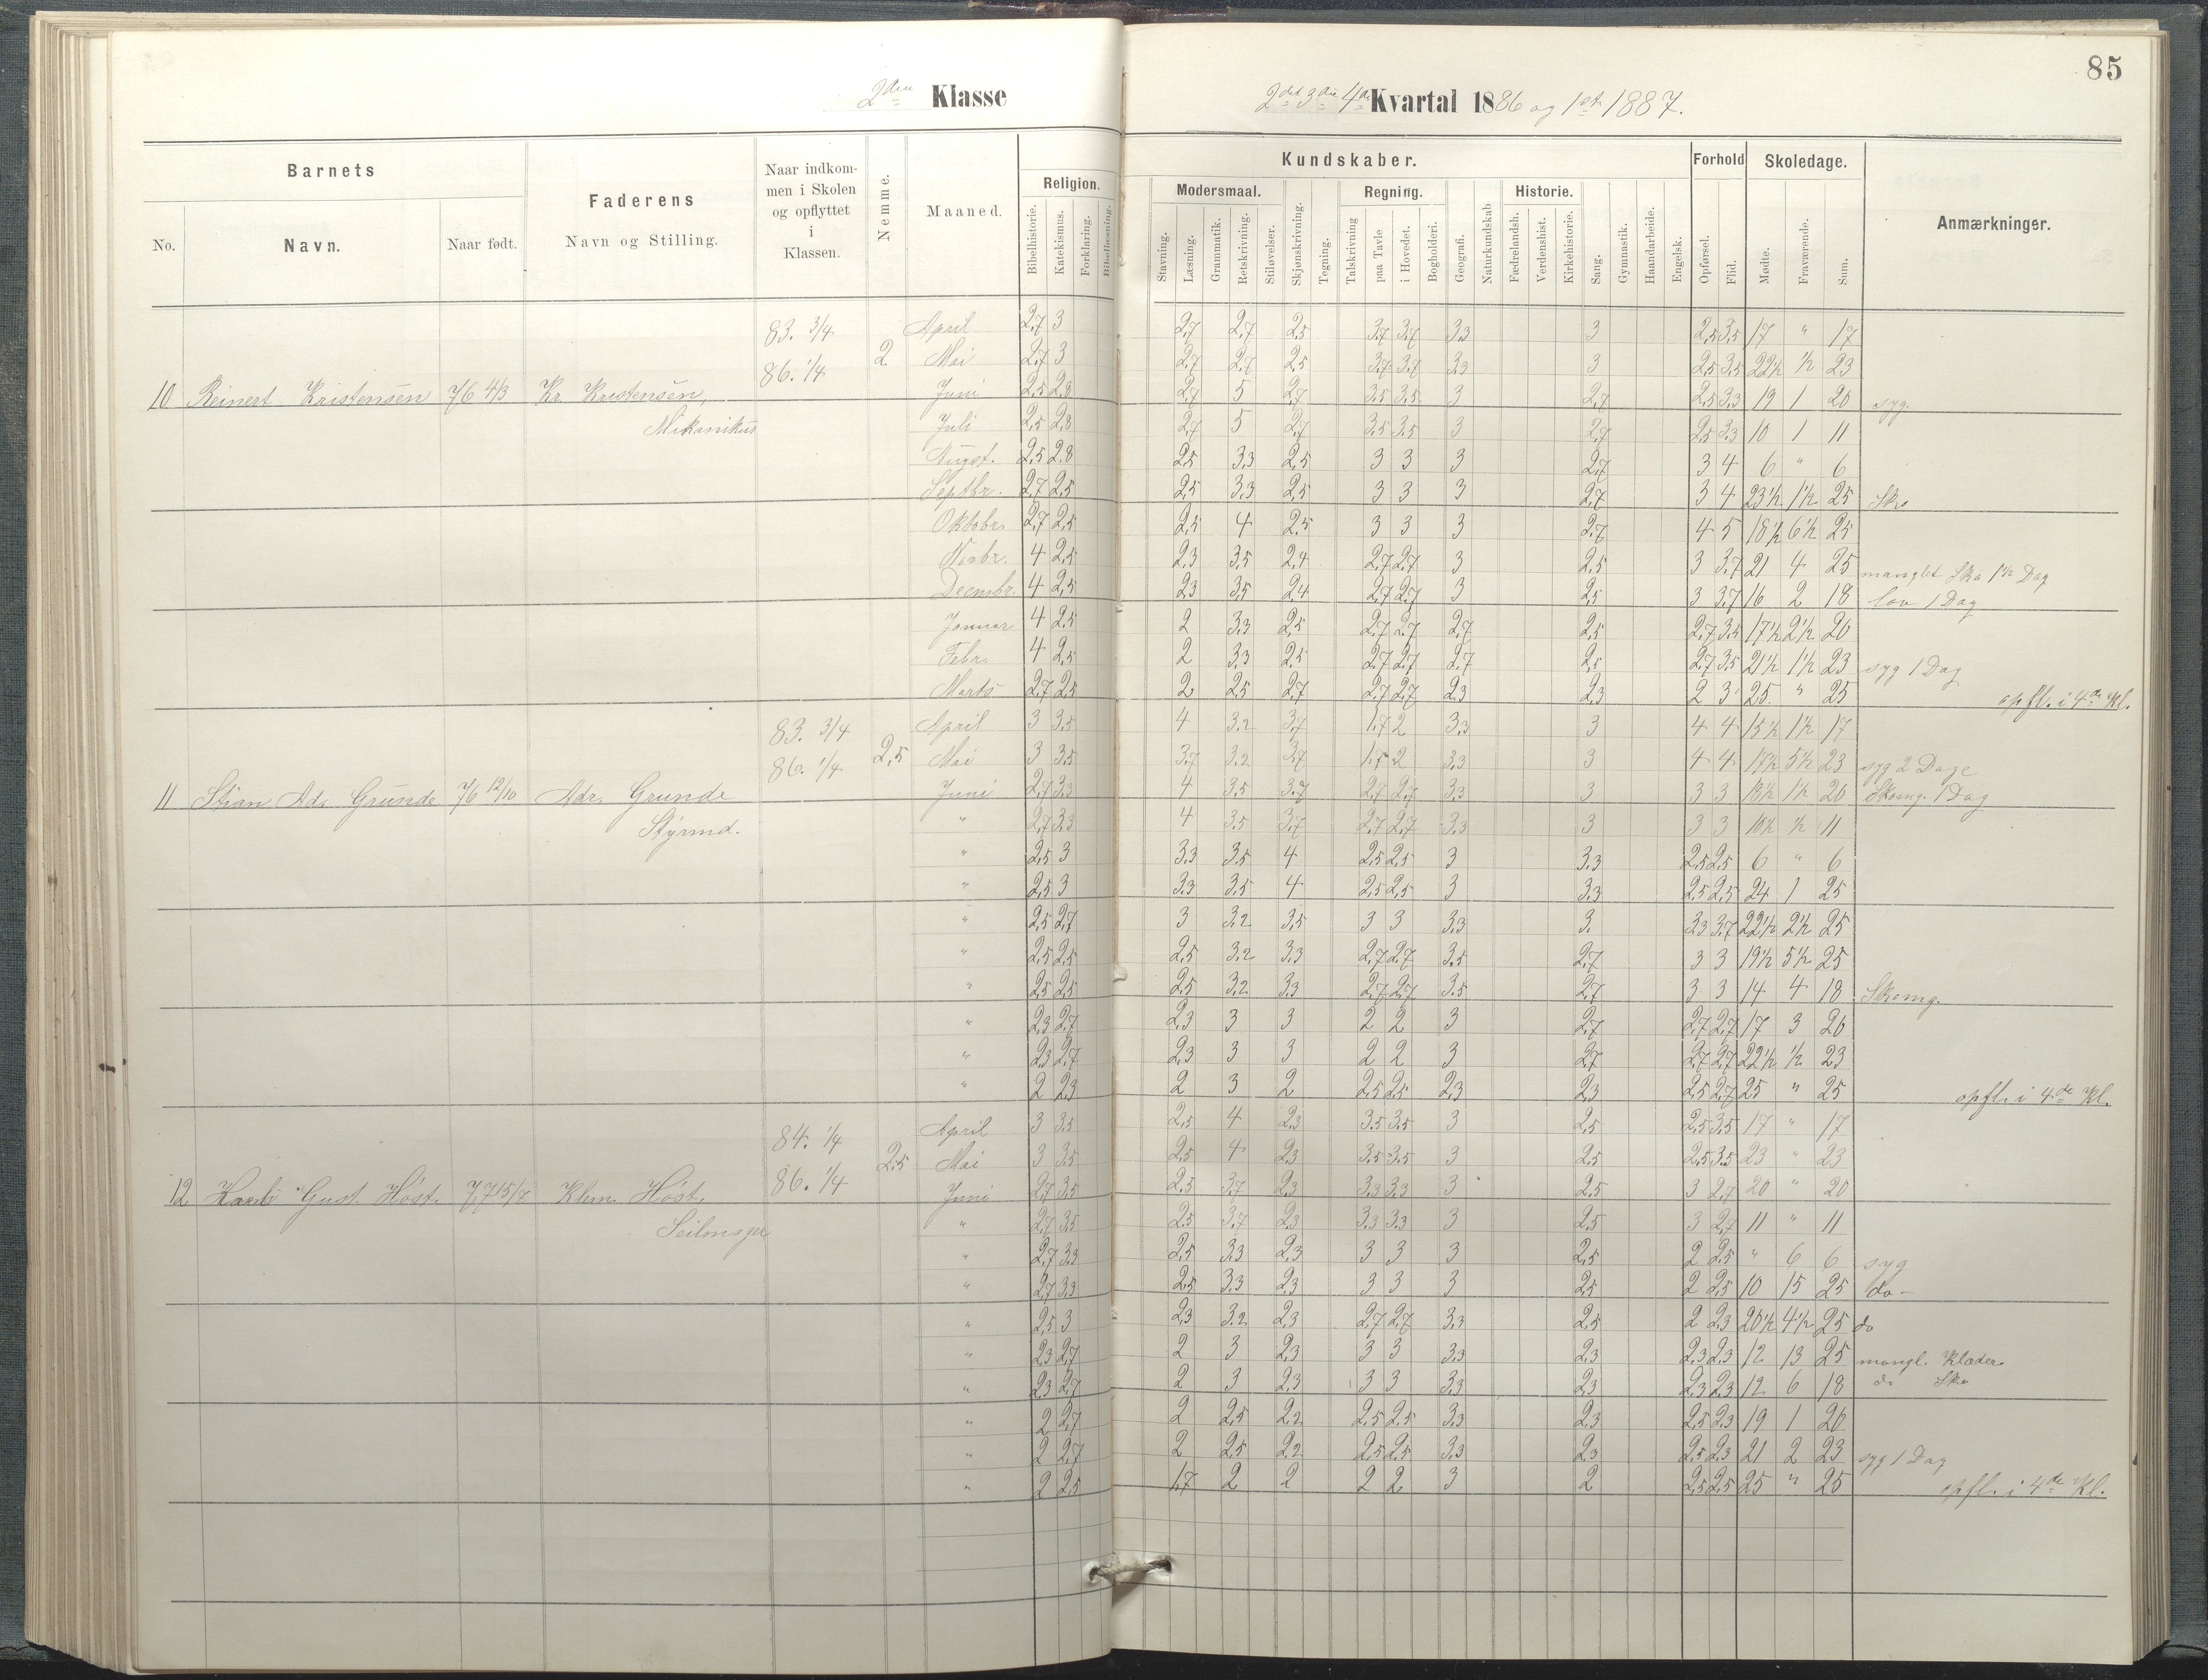 85
2den Klasse
2det 3die 4de Kvartal 1886 og 1st 1887.
Barnets
Faderens
Naar indkommen i Skolen og opflyttet i Klassen.
Nemme.
Maaned.
Religion.
Kundskaber.
Modersmaal.
Regning.
Historie.
Forhold
Skoledage.
Anmærkninger.
No.
Navn.
Naar født.
Navn og Stilling.
Bibelhistorie. Katekismus. Forklaring. Bibellæsning.
Stavning. Læsning. Grammatik. Retskrivning. Stiløvelser. Skjønskrivning. Tegning. Talskrivning paa Tavle i Hovedet. Bogholderi. Geografi. Naturkundskab Fædrelandsh. Verdenshist. Kirkehistorie. Sang. Gymnastik. Haandarbeide. Engelsk. Opførsel. Flid. Mødte. Fraværende. Sum.
83. 3/4 April 2,7 3 2,7 2,7 2,5 3,7 3,7 3,3 3 2,5 3,5 17 " 17
86. 1/4 2 Mai 2,7 3 2,7 2,7 2,5 3,7 3,7 3,3 3 2,5 3,5 22½ ½ 23
10 Reinert Kristensen 76 4/3 Kr. Kristensen, Juni 2,5 2,8 2,7 5 2,7 3,5 3,5 3 2,7 2,5 3,3 19 1 20 syg.
Mikanikus Juli 2,5 2,8 2,7 5 2,7 3,5 3,5 3 2,7 2,5 3,3 10 1 11
Augst. 2,5 2,8 2,5 3,3 2,5 3 3 3 2,7 3 4 6 " 6
Septbr. 2,7 2,5 2,5 3,3 2,5 3 3 3 2,7 3 4 23½ 1½ 25 Sko
Oktobr. 2,7 2,5 2,5 4 2,5 3 3 3 2,7 4 5 18½ 6½ 25
Novbr. 4 2,5 2,3 3,5 2,4 2,7 2,7 3 2,5 3 3,7 21 4 25 manglet Sko 1½ Dag
Decmbr. 4 2,5 2,3 3,5 2,4 2,7 2,7 3 2,5 3 3,7 16 2 18 lov 1 Dag
Januar 4 2,5 2 3,3 2,5 2,7 2,7 2,7 2,5 2,7 3,5 17½ 2½ 20
Febr. 4 2,5 2 3,3 2,5 2,7 2,7 2,7 2,5 2,7 3,5 21½ 1½ 23 syg 1 Dag
Marts 2,7 2,5 2 2,5 2,7 2,7 2,7 2,3 2,3 2 3 25 " 25 opfl. i 4de Kl.
83. 3/4 April 3 3,5 4 3,2 3,7 1,7 2 3,3 3 4 4 15½ 1½ 17
86. 1/4 2,5 Mai 3 3,5 3,7 3,2 3,7 1,7 2 3,3 3 4 4 17½ 5½ 23 syg 2 Dage
11 Stian Adr. Grunde 76 12/10 Adr. Grunde Juni 2,7 3,3 4 3,5 3,7 2,7 2,7 3,3 3 3 3 18½ 1½ 20 Skomg. 1 Dag
Styrmd. " 2,7 3,3 4 3,5 3,7 2,7 2,7 3,3 3 3 3 10½ ½ 11
" 2,5 3 3,3 3,5 4 2,5 2,5 3 3,3 2,5 2,5 6 " 6
" 2,5 3 3,3 3,5 4 2,5 2,5 3 3,3 2,5 2,5 24 1 25
" 2,5 2,7 3 3,2 3,5 3 3 3,3 3. 3,3 3,7 22½ 2½ 25
" 2,5 2,5 2,5 3,2 3,3 2,7 2,7 3,5 2,7 3 3 19½ 5½ 25
" 2,5 2,5 2,5 3,2 3,3 2,7 2,7 3,5 2,7 3 3 14 4 18 Skomg.
" 2,3 2,7 2,3 3 3 2 2 3 2,7 2,7 2,7 17 3 20
" 2,3 2,7 2,3 3 3 2 2 3 2,7 2,7 2,7 22½ ½ 23
" 2 2,3 2 3 2 2,5 2,5 2,3 2,3 2,5 2,7 25 " 25 opfl. i 4de Kl.
84. 1/4 April 3 3,5 2,5 4 2,3 3,5 3,5 3 2,5 2,5 3,5 17 " 17
2,5 Mai 3 3,5 2,5 4 2,3 3,5 3,5 3 2,5 2,5 3,5 23 " 23
12 Gust. Höst. 77 15/7 Klem. Höst. 86. 1/4 Juni 2,7 3,5 2,5 3,7 2,3 3,3 3,3 3 2,5 3 2,7 20 " 20
" 2,7 3,5 2,5 3,7 2,3 3,3 3,3 3 2,5 3 2,7 11 " 11
" 2,7 3,3 2,5 3,3 2,3 3 3 3 2,5 2 2,5 " 6 6 syg
" 2,7 3,3 2,5 3,3 2,3 3 3 3 2,5 2 2,5 10 15 25 do -
" 2,5 3 2,3 3,2 2,3 2,7 2,7 3,3 2,5 2 2,3 20½ 4½ 25 do
" 2,3 2,7 2 3 2,3 3 3 3,3 2,3 2,3 2,3 12 13 25 mangl. Klæder.
" 2,3 2,7 2 3 2,3 3 3 3,3 2,3 2,3 2,3 12 6 18 do Sko
" 2 2,7 2 2,5 2,2 2,5 2,5 3,3 2,3 2,5 2,3 19 1 20
" 2 2,7 2 2,5 2,2 2,5 2,5 3,3 2,3 2,5 2,3 21 2 23 syg 1 Dag
" 2 2,5 1,7 2 2 2 2 3 2 2,5 2,5 25 " 25 opfl. i 4de Kl.